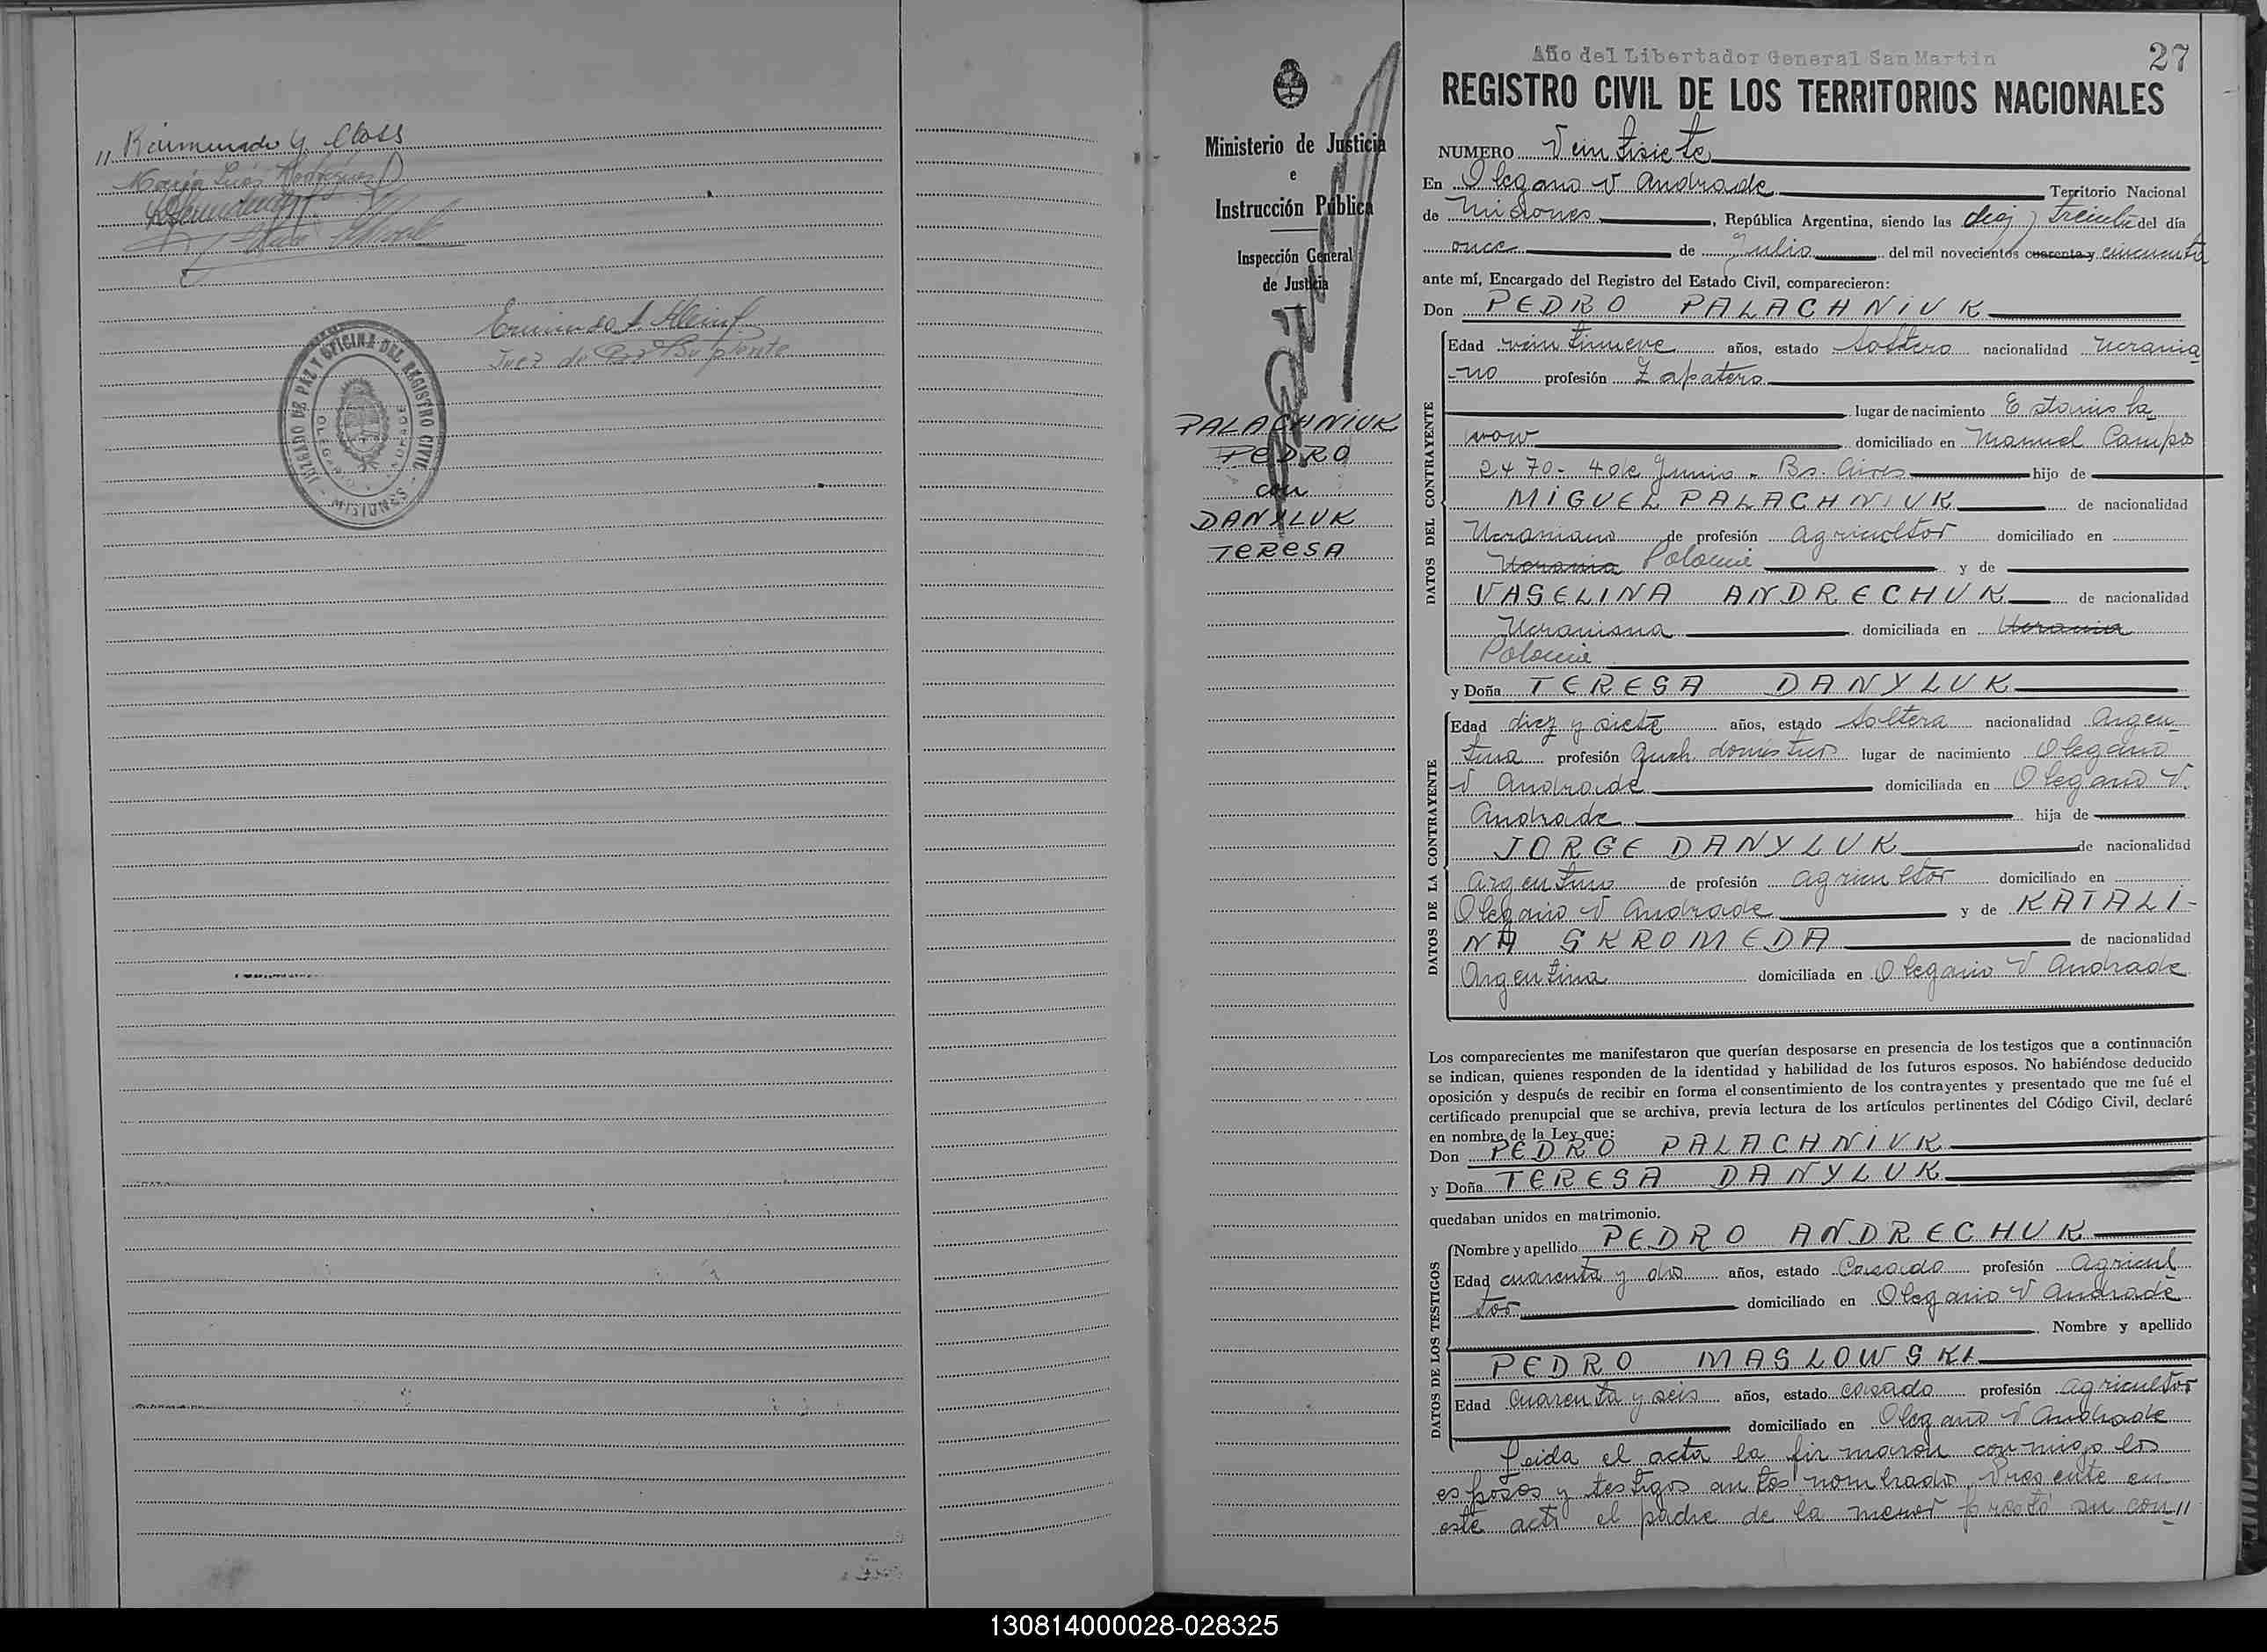 " Raimundo G Closs
María Luisa Rodríguez
Erminda A Kleint
Juez de Paz Suplente
JUZGADO DE PAZ Y OFICINA DEL REGISTRO CIVIL
OLEGARIO V. ANDRADE
- MISIONES -
Ministerio de Justicia
e
Instrucción Pública
Inspección General
de Justicia
PALACHNIUK
PEDRO
con
DANYLUK
TERESA
Año del Libertador General San Martín
27
REGISTRO CIVIL DE LOS TERRITORIOS NACIONALES
NUMERO Veintisiete
En Olegario V Andrade Territorio Nacional
de Misiones, República Argentina, siendo las diez y treinta del día
once de Julio del mil novecientos cuarenta y cincuenta
ante mí, Encargado del Registro del Estado Civil, comparecieron:
Don PEDRO PALACHNIUK
DATOS DEL CONTRAYENTE
Edad veintinueve años, estado Soltero nacionalidad Ucrania-
-no profesión Zapatero
lugar de nacimiento Estanisla
wow domiciliado en Manuel Campos
2470 - 4 de Junio - Bs. Aires hijo de
MIGUEL PALACHNIUK de nacionalidad
Ucraniano de profesión agricultor domiciliado en
Ucrania Polonia y de
VASELINA ANDRECHUK de nacionalidad
Ucraniana domiciliada en Ucrania
Polonia
y Doña TERESA DANYLUK
DATOS DE LA CONTRAYENTE
Edad diez y siete años, estado Soltera nacionalidad Argen-
tina profesión Queh. domésticos lugar de nacimiento Olegario
V Andrade domiciliada en Olegario V.
Andrade hija de
JORGE DANYLUK de nacionalidad
Argentino de profesión agricultor domiciliado en
Olegario V Andrade y de KATALI-
NA SKROMEDA de nacionalidad
Argentina domiciliada en Olegario V Andrade
Los comparecientes me manifestaron que querían desposarse en presencia de los testigos que a continuación
se indican, quienes responden de la identidad y habilidad de los futuros esposos. No habiéndose deducido
oposición y después de recibir en forma el consentimiento de los contrayentes y presentado que me fué el
certificado prenupcial que se archiva, previa lectura de los artículos pertinentes del Código Civil, declaré
en nombre de la Ley que:
Don PEDRO PALACHNIUK
y Doña TERESA DANYLUK
quedaban unidos en matrimonio.
DATOS DE LOS TESTIGOS
Nombre y apellido PEDRO ANDRECHUK
Edad cuarenta y dos años, estado Casado profesión Agricul
tor domiciliado en Olegario V Andrade
Nombre y apellido
PEDRO MASLOWSKI
Edad cuarenta y seis años, estado casado profesión agricultor
domiciliado en Olegario V Andrade
Leida el acta la firmaron conmigo los
esposos y testigos antes nombrados. Presente en
este acto el padre de la menor prestó su con//
130814000028-028325